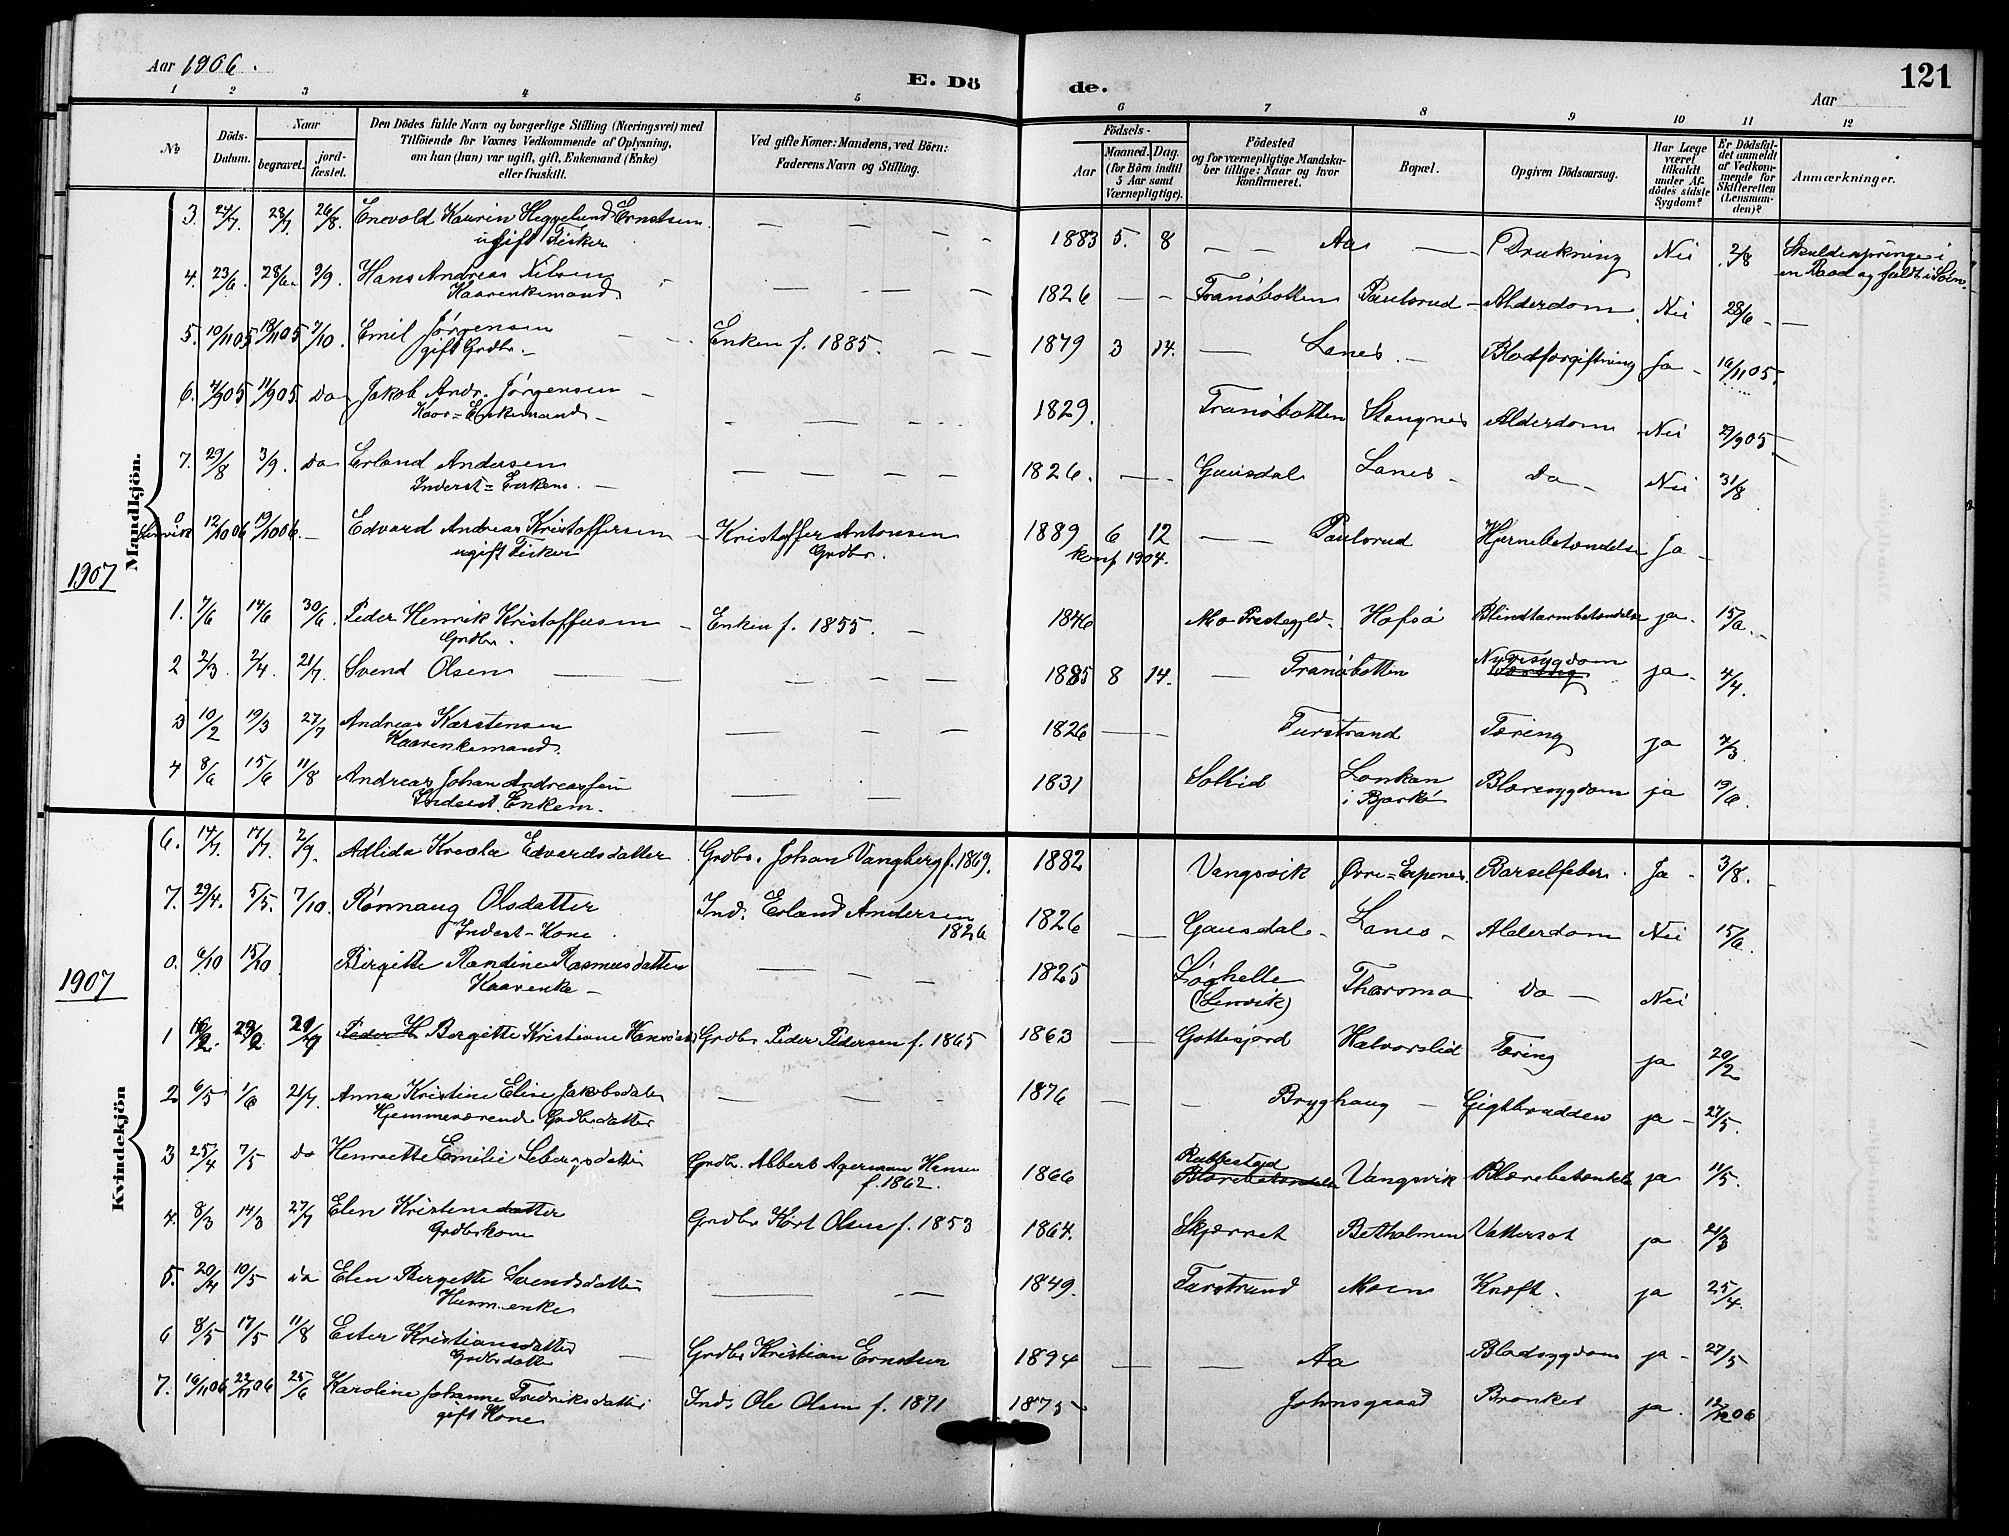 Aar 1906.
E. Dö
de.
Aar
121
1 2 3 4 5 6 7 8 9 10 11 12
No
Döds-Datum.
Naar
begravet.
jord-fæstet.
Den Dödes fulde Navn og borgerlige Stilling (Næringsvei) med
Tilföiende for Voxnes Vedkommende af Oplysning,
om han (hun) var ugift, gift, Enkemand (Enke)
eller fraskilt.
Ved gifte Koner: Mandens, ved Börn:
Faderens Navn og Stilling.
Födsels-
Aar
Maaned. Dag.
(for Börn indtil
5 Aar samt
Værnepligtige).
Födested
og for værnepligtige Mandska-
ber tillige: Naar og hvor
konfirmeret.
Bopæl.
Opgiven Dödsaarsag.
Har Læge
været
tilkaldt
under Af-
dödes sidste
Sygdom?
Er Dödsfal-
det anmeldt
af Vedkom-
mende for
Skifteretten
(Lensman-
den)?
Anmærkninger.
Mandkjön.
3. 24/7. 28/7. 26/8. Enevold Kaurin Heggelund Ernstsen — — — — 1883 5. 8 — — Aa — Drukning Nei 2/8
ugift Fisker
en Baad og faldt i Söen.
4. 23/6. 28/6. 9/9. Hans Andreas Nilsen — — — 1826 — — Tranöbotten Paulsrud Alderdom. Nei 28/6 —
Kaarenkemand
5. 10/1105 18/1105 7/10. Emil Jörgensen Enken f. 1885. — — 1879 3 14. — Lanes. — Blodforgiftning Ja — 16/1105.
gift Grdbr.
6. 4/905 11/905 Do Jakob Andr. Jörgensen — — — — 1829. Tranöbotten Stangnes Alderdom Nei 29/905
Kaar=Enkemand —
7. 29/8 3/9. Do Erland Andersen — — — — 1826. — — Gausdal Lanes — Do — Nei 31/8
Inderst=Enkem. —
0 Lenvik 12/1006 19/1006 — Edvard Andreas Kristoffersen — Kristoffer Antonsen 1889 6 12 — — Paulsrud Hjernebetændelse Ja —
ugift Fisker Grdbr. Konf 1904.
1907
1. 7/6 14/6 30/6. Peder Henrik Kristoffersen — Enken f. 1855. — 1846 Mo Prestegjeld. Hofsö Blindtarmbetændelse ja. 15/6. —
Grdbr.
2 2/3. 2/4. 21/7. Svend Olsen — — — — 1885 8 14. — Tranöbotten Nyresygdom ja — 4/4.
3 10/2 19/3 27/7 Andreas Karstensen — — — 1826 — — Furstrand Tæring ja 4/3
Kaarenkemand.
4 8/6 15/6 11/8 Andreas Johan Andreassen — — 1831 Sollid Lonkan Blæresygdom ja 19/6.
Inderst. Enkem. i Bjarkö
Kvindekjön
6. 14/7. 17/7. 2/9. Adlida Edvardsdatter Grdbr. Johan Vangberg f. 1869. 1882 Vangsvik Övre=Espenes. Barselfeber. Ja — 3/8. —
7. 29/4. 5/5. 7/10. Rönnaug Olsdatter Ind. Erland Andersen 1826 — Gausdal — Lanes — Alderdom Nei 15/6
Inderst-Kone 1826
0. 6/10 15/10 Birgitte Randine Rasmusdatter — — — 1825 Löghelle Do — Nei
Kaarenke — (Lenvik)
1907
1 22/2 Peder H Bergitte Kristiane Grdbr. Peder Pedersen f. 1865 1863 — Gottesjord Halvorslid Tæring ja 20/2
2. 6/5 1/6 21/7. Anna Kristine Elise Jakobsdatter — — — 1876 — — Bryghaug — Gigtbrudden ja — 27/5.
Hjemmeværende Grdbrdatter
3 25/4 7/5 do Henriette Emilie Grdbr. Albert Agerman Hansen 1866 Rubbestad Vangsvik Blærebetændelse ja 11/5.
f. 1862. Blærebetændelse
4. 8/3 14/3 27/7 Elen Kristensdatter Grdbr Kört Olsen f. 1853 1864. Skjærret Betholmen Vattersot ja 21/3
Grdbrkone
5. 20/4 10/5 do Elen Bergette Svendsdatter — — 1849. Furstrand Moen Kræft. ja 25/4.
Husm.enke
6 8/5 17/5 11/8 Ester Kristiansdatter — Grdbr Kristian Ernstsen 1894 — — Aa Blodsygdom ja — 27/5
Grdbrdatter
7. 16/1106 22/1106 25/6 Karoline Johanne Fredriksdatter Ind. Ole Olsen f. 1871 1875 — Johnsgaard Bronket ja. 12/1206
gift Kone